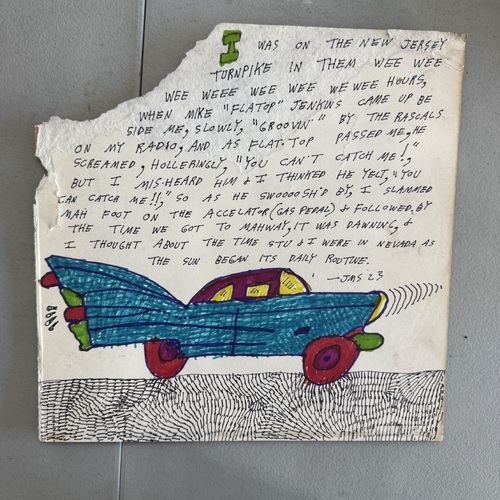 I WAS ON THE NEW JERSEY
TURNPIKE IN THEM WEE WEE
WEE WEEE WEE WEE WE WEE HOURS,
WHEN MIKE "FLATOP" JENKINS CAME UP BE
SIDE ME, SLOWLY, "GROOVIN'" BY THE RASCALS
ON MY RADIO, AND AS FLAT.TOP PASSED ME, HE
SCREAMED, HOLLERINGLY, "YOU CAN'T CATCH ME!,"
BUT I MIS-HEARD HIM & I THINKED HE YELT, "YOU
CAN CATCH ME!!," SO AS HE SWOOOOSH'D BY, I SLAMMED
MAH FOOT ON THE ACCELATOR (GAS PEDAL) & FOLLOWED. BY
THE TIME WE GOT TO MAHWAY, IT WAS DAWNING, &
I THOUGHT ABOUT THE TIME STU & I WERE IN NEVADA AS
THE SUN BEGAN ITS DAILY ROUTINE.
—JMS 23